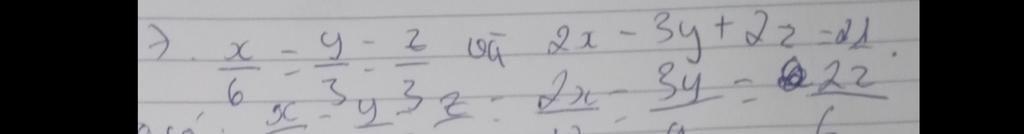 7). x/6 = y/3 = z/3 và 2x - 3y + 2z = 21.
x = y = z = 2x = 3y = 2z